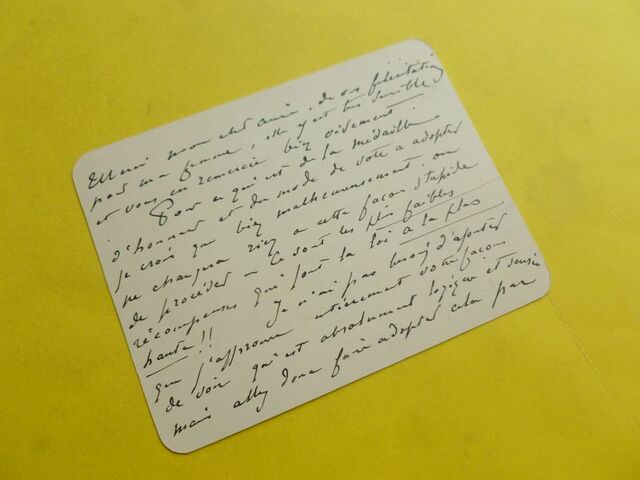 Merci mon cher ami, de vos félicitations
pour ma femme, elle y est très sensible
et vous en remercie bien vivement.
Pour ce qui est de la médaille
d'honneur et du mode de vote a adopter
je crois que bien malheureusement, on
ne changera rien a cette façon stupide
de procéder — Ce sont les plus faibles
récompenses qui font la loi a la plus
haute!! Je n'ai pas besoin d'ajouter
que j'approuve entièrement votre façon
de voir qui est absolument logique et sensée
mais allez donc faire adopter cela par